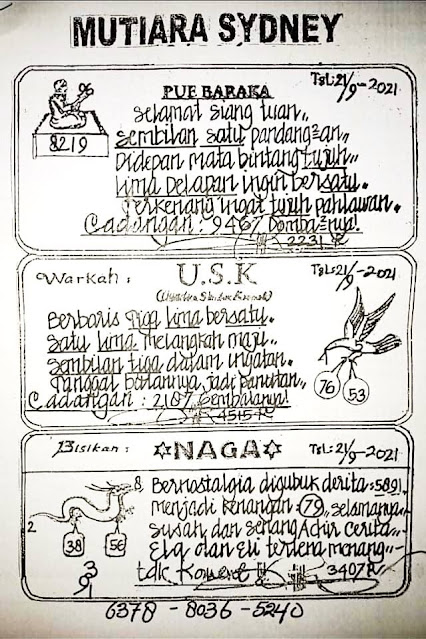 MUTIARA SYDNEY
PUE BARAKA
TGL: 21/9-2021
96
8219
Selamat siang tuan,,
Sembilan satu pandangan,,
Didepan mata bintang tujuh,,
Lima Delapan ingin bersatu.
Terkenang ingat tujuh pahlawan.
Cadangan : 9467 Bombaznya!
2231 R
Warkah :
U.S.K
TGL: 21/9-2021
Berbaris tiga lima bersatu.
Satu lima melangkah maju..
Sembilan tiga dalam ingatan.
Tanggal bulannya jadi panutan,,
Cadangan : 2187 Gembalanya!
4515-R
76
53
Bisikan :
NAGA
TGL: 21/9-2021
8
2
38
56
9
3
1
Bernostalgia digubuk derita : 5891
menjadi kenangan : 79 ,, selamanya
susah dan senang Achir cerita,,
dan Eli terlena menang
tdk
3407 R
6378 - 8036 - 5240